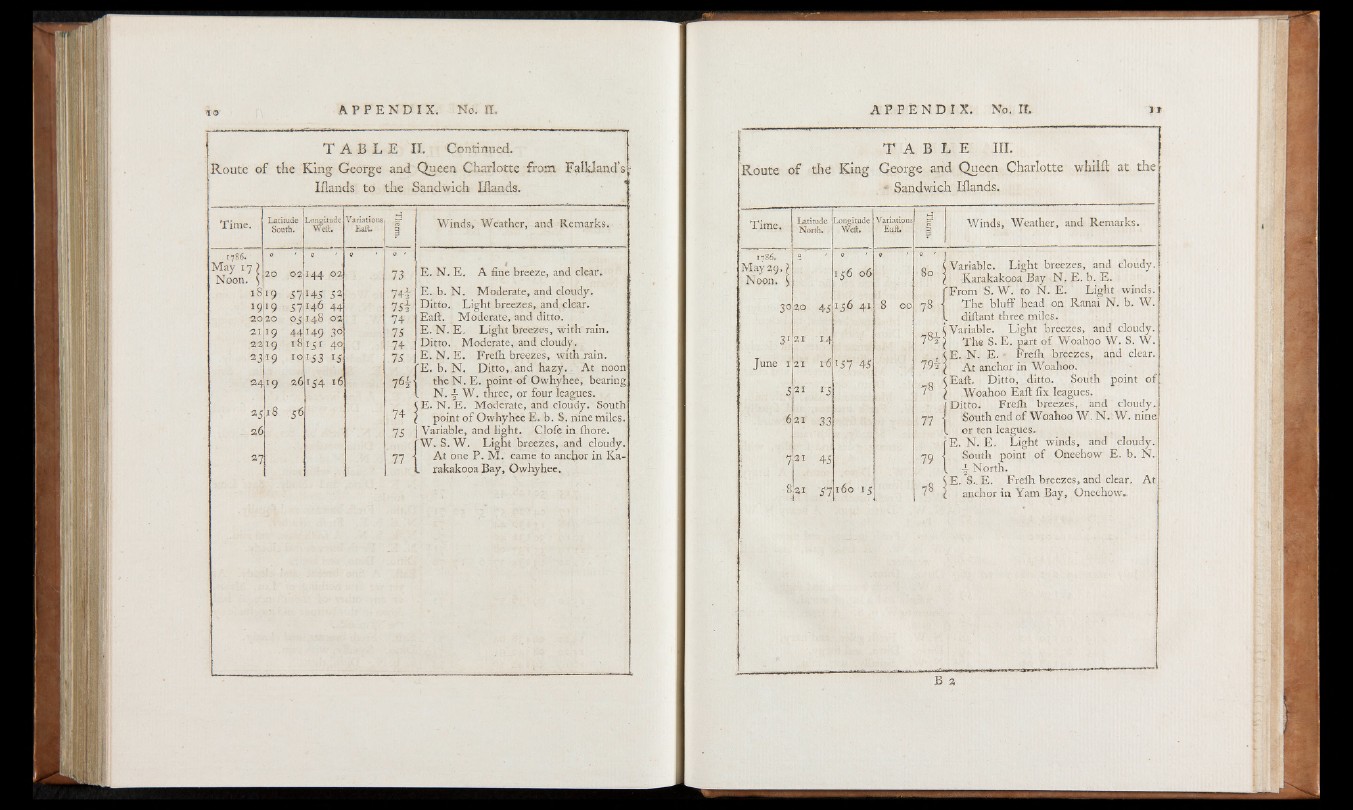 10 APPENDIX. No. II.
TABLE II. Continued.
Route of the King George and Queen Charlotte from Falkland's
Iſlands to the Sandwich Iſlands.
Time. Latitude South. Longitude Weſt. Variations Eaſt. Therm. Winds, Weather, and Remarks.
1786. ° ′ ° ′ ° ′ ° ′
May 17 Noon. 20 02 144 02 73 E. N. E. A fine breeze, and clear.
18 19 57 145 52 74½ E. b. N. Moderate, and cloudy.
19 19 57 146 44 75½ Ditto. Light breezes, and clear.
20 20 05 148 02 74 Eaſt. Moderate, and ditto.
21 19 44 149 30 75 E. N. E. Light breezes, with rain.
22 19 18 151 40 74 Ditto. Moderate, and cloudy.
23 19 10 153 15 75 E. N. E. Freſh breezes, with rain.
E. b. N. Ditto, and hazy. At noon
24 19 26 154 16 76½ the N. E. point of Owhyhee, bearing
N. ½ W. three, or four leagues.
25 18 56 74 E. N. E. Moderate, and cloudy. South
point of Owhyhee E. b. S. nine miles.
26 75 Variable, and light. Cloſe in ſhore.
W. S. W. Light breezes, and cloudy.
27 77 At one P. M. came to anchor in Ka-
rakakooa Bay, Owhyhee.
APPENDIX. No. II. 11
TABLE III.
Route of the King George and Queen Charlotte whilſt at the
Sandwich Iſlands.
Time. Latitude North. Longitude Weſt. Variations Eaſt. Therm. Winds, Weather, and Remarks.
1786. ° ′ ° ′ ° ′ ° ′
May 29. Noon. 156 06 80 Variable. Light breezes, and cloudy.
Karakakooa Bay N. E. b. E.
From S. W. to N. E. Light winds.
30 20 45 156 41 8 00 78 The bluff head on Ranai N. b. W.
diſtant three miles.
31 21 14 78½ Variable. Light breezes, and cloudy.
The S. E. part of Woahoo W. S. W.
June 1 21 16 157 45 79½ E. N. E. Freſh breezes, and clear.
At anchor in Woahoo.
5 21 15 78 Eaſt. Ditto, ditto. South point of
Woahoo Eaſt ſix leagues.
Ditto. Freſh breezes, and cloudy.
6 21 33 77 South end of Woahoo W. N. W. nine
or ten leagues.
E. N. E. Light winds, and cloudy.
7 21 45 79 South point of Oneehow E. b. N.
½ North.
8 21 57 160 15 78 E. S. E. Freſh breezes, and clear. At
anchor in Yam Bay, Oneehow.
B 2